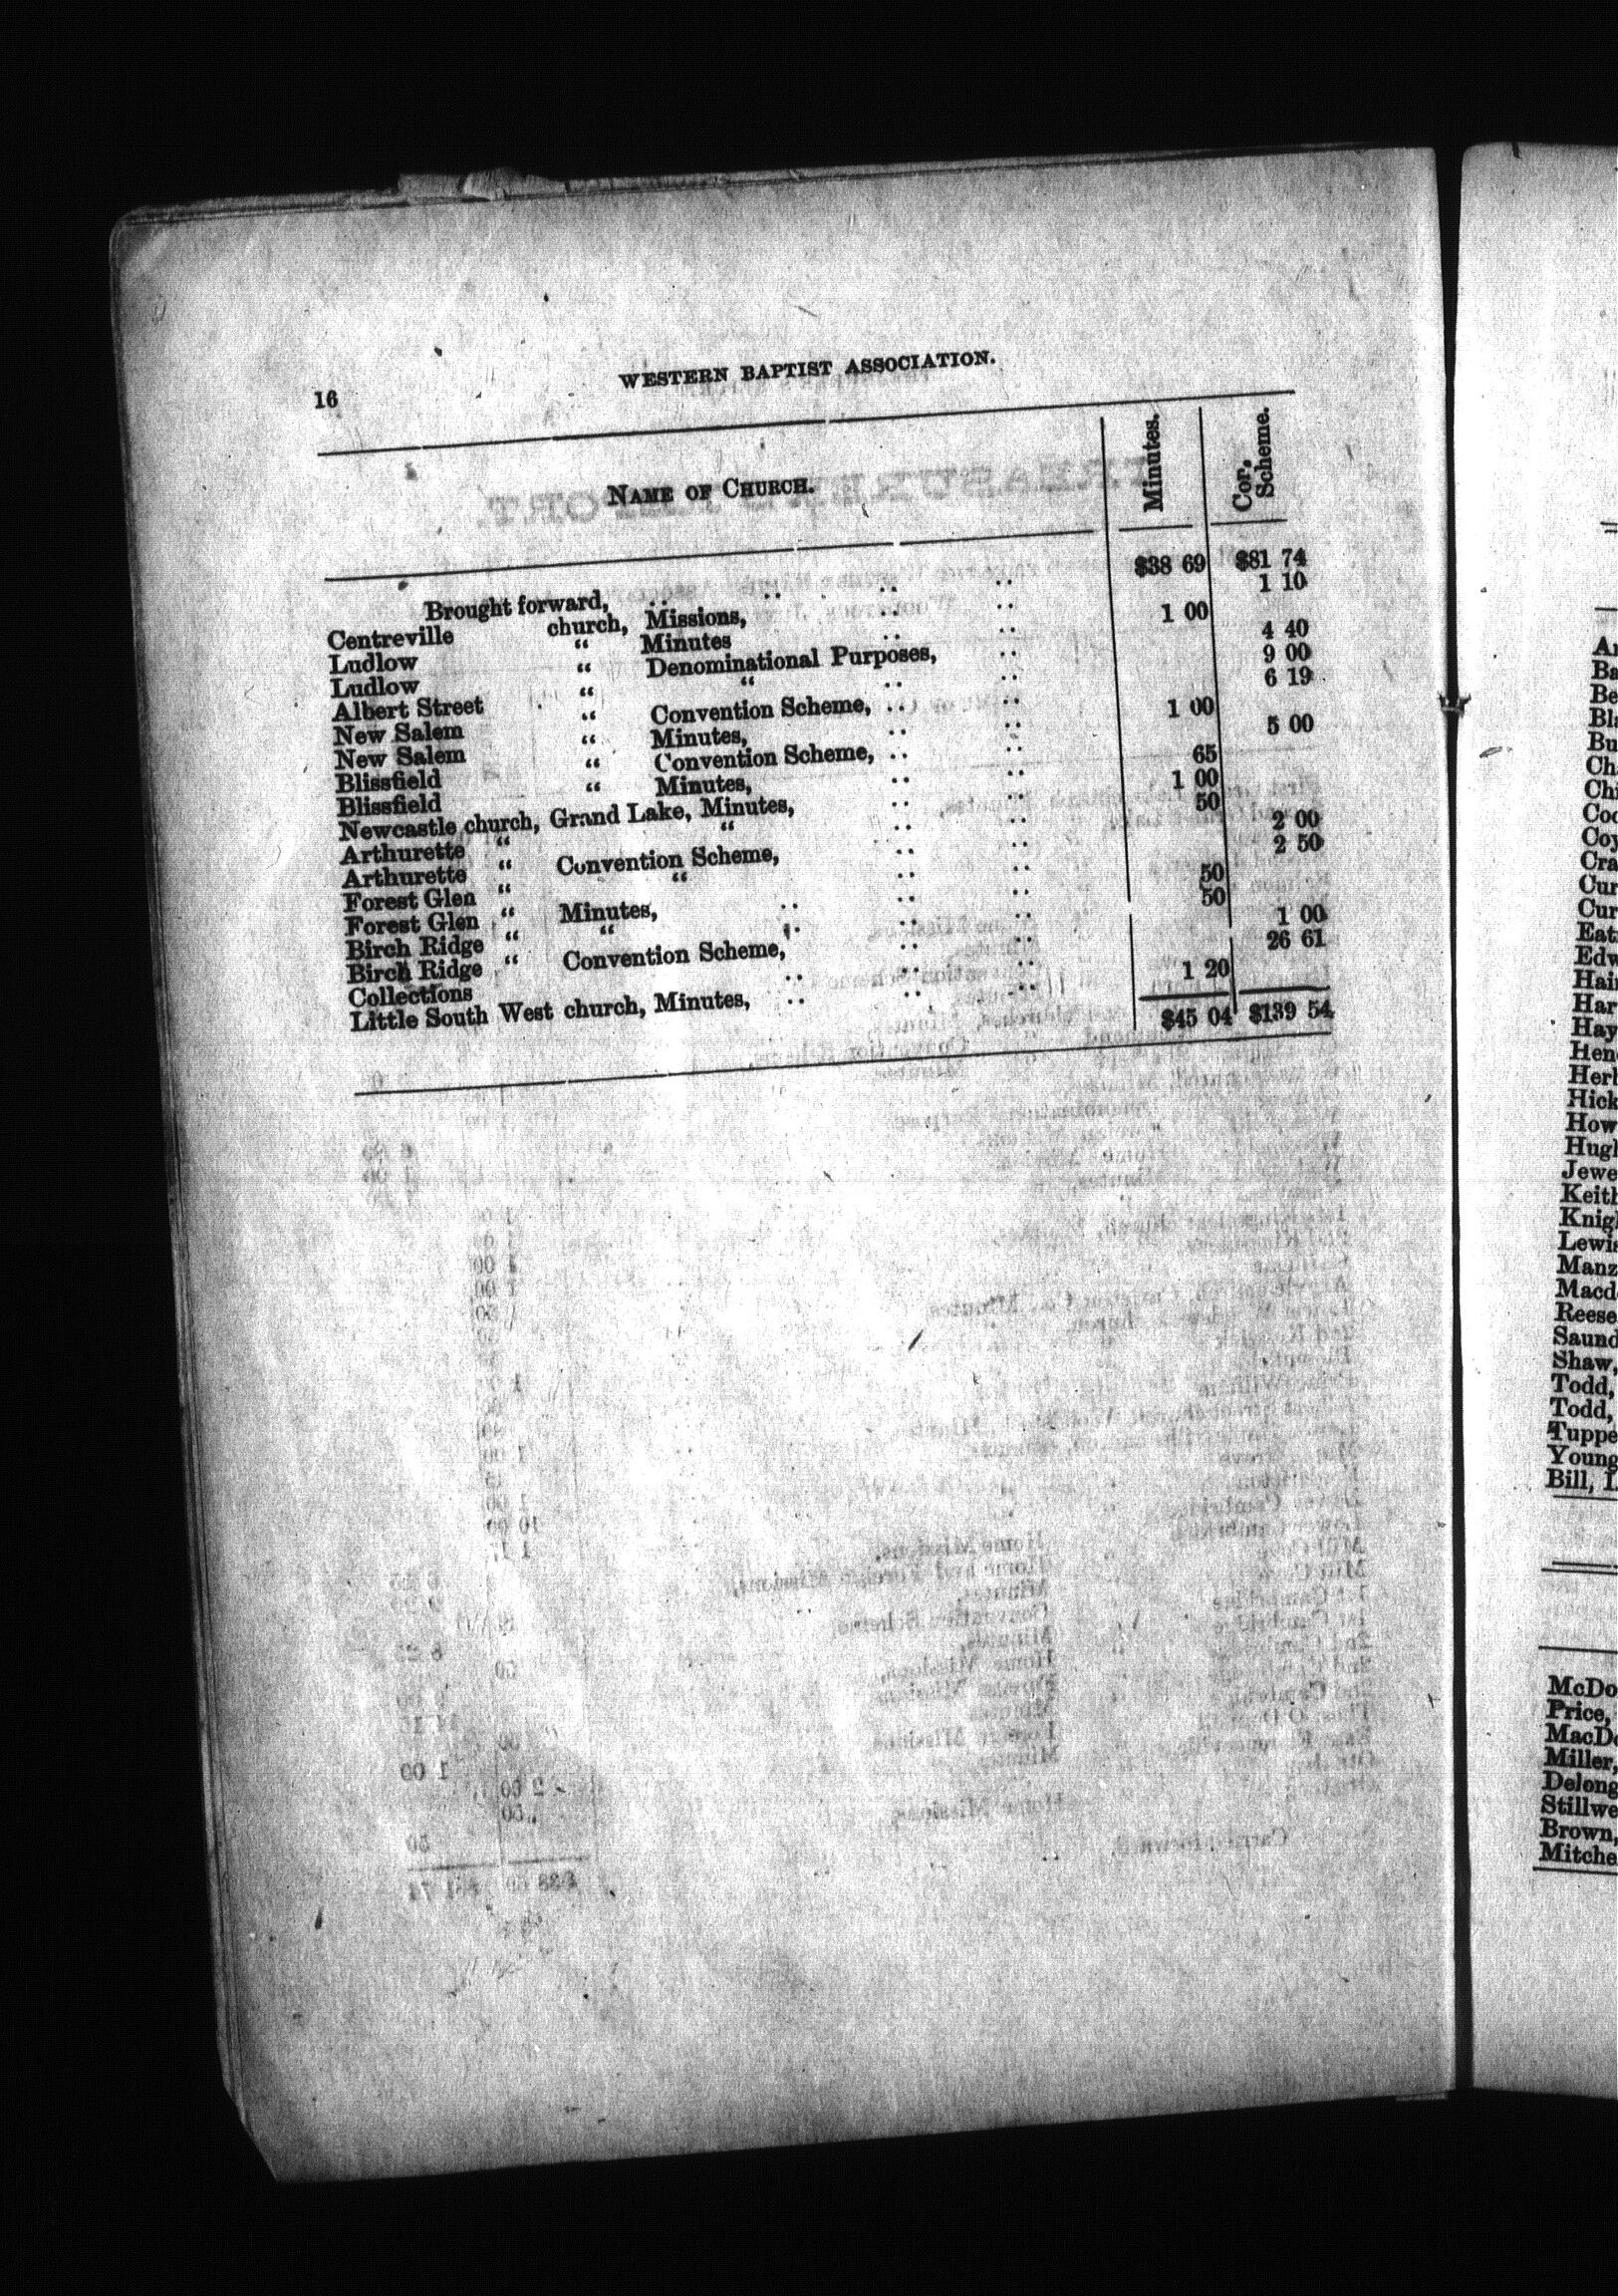 16
WESTERN BAPTIST ASSOCIATION.
NAME OF CHURCH. Minutes. Cor, Scheme.
Brought forward, .. .. .. $38 69 $81 74
Centreville church, Missions, .. .. 1 10
Ludlow “ Minutes .. .. 1 00
Ludlow “ Denominational Purposes, .. 4 40
Albert Street “ “ .. .. 9 00
New Salem “ Convention Scheme, .. .. 6 19
New Salem “ Minutes, .. .. 1 00
Blissfield “ Convention Scheme, .. .. 5 00
Blissfield “ Minutes, .. .. 65
Newcastle church, Grand Lake, Minutes, .. .. 1 00
Arthurette “ “ .. .. 50
Arthurette “ Convention Scheme, .. .. 2 00
Forest Glen “ “ .. .. 2 50
Forest Glen “ Minutes, .. .. .. 50
Birch Ridge “ “ .. .. .. 50
Birch Ridge “ Convention Scheme, .. .. 1 00
Collections .. .. .. 26 61
Little South West church, Minutes, .. .. .. 1 20
$45 04 $139 54
Ba
Be
Bla
Bu
Ch
Chi
Coo
Coy
Cra
Cur
Cur
Eat
Edw
Hai
Har
Hay
Hen
Her
Hick
How
Hugh
Jewe
Keith
Knig
Lewis
Manz
Macd
Reese
Saund
Shaw,
Todd,
Todd,
Tuppe
Young
Bill, I.
McDo
Price,
MacDo
Miller,
Delong
Stillwe
Brown,
Mitche